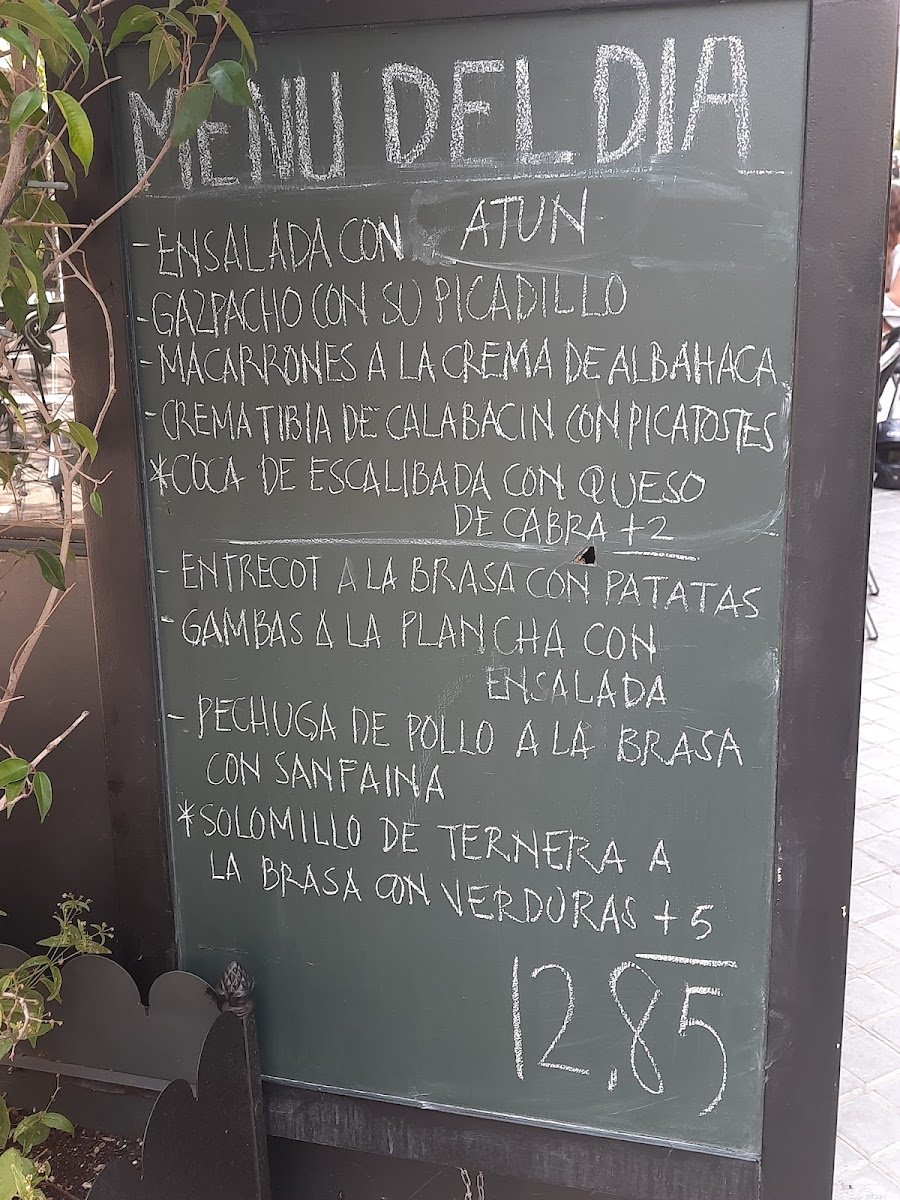 MENU DEL DIA
- ENSALADA CON ATUN
- GAZPACHO CON SU PICADILLO
- MACARRONES A LA CREMA DE ALBAHACA
- CREMA TIBIA DE CALABACIN CON PICATOSTES
*COCA DE ESCALIBADA CON QUESO
DE CABRA +2
- ENTRECOT A LA BRASA CON PATATAS
- GAMBAS A LA PLANCHA CON
ENSALADA
- PECHUGA DE POLLO A LA BRASA
CON SANFAINA
*SOLOMILLO DE TERNERA A
LA BRASA CON VERDURAS +5
12,85